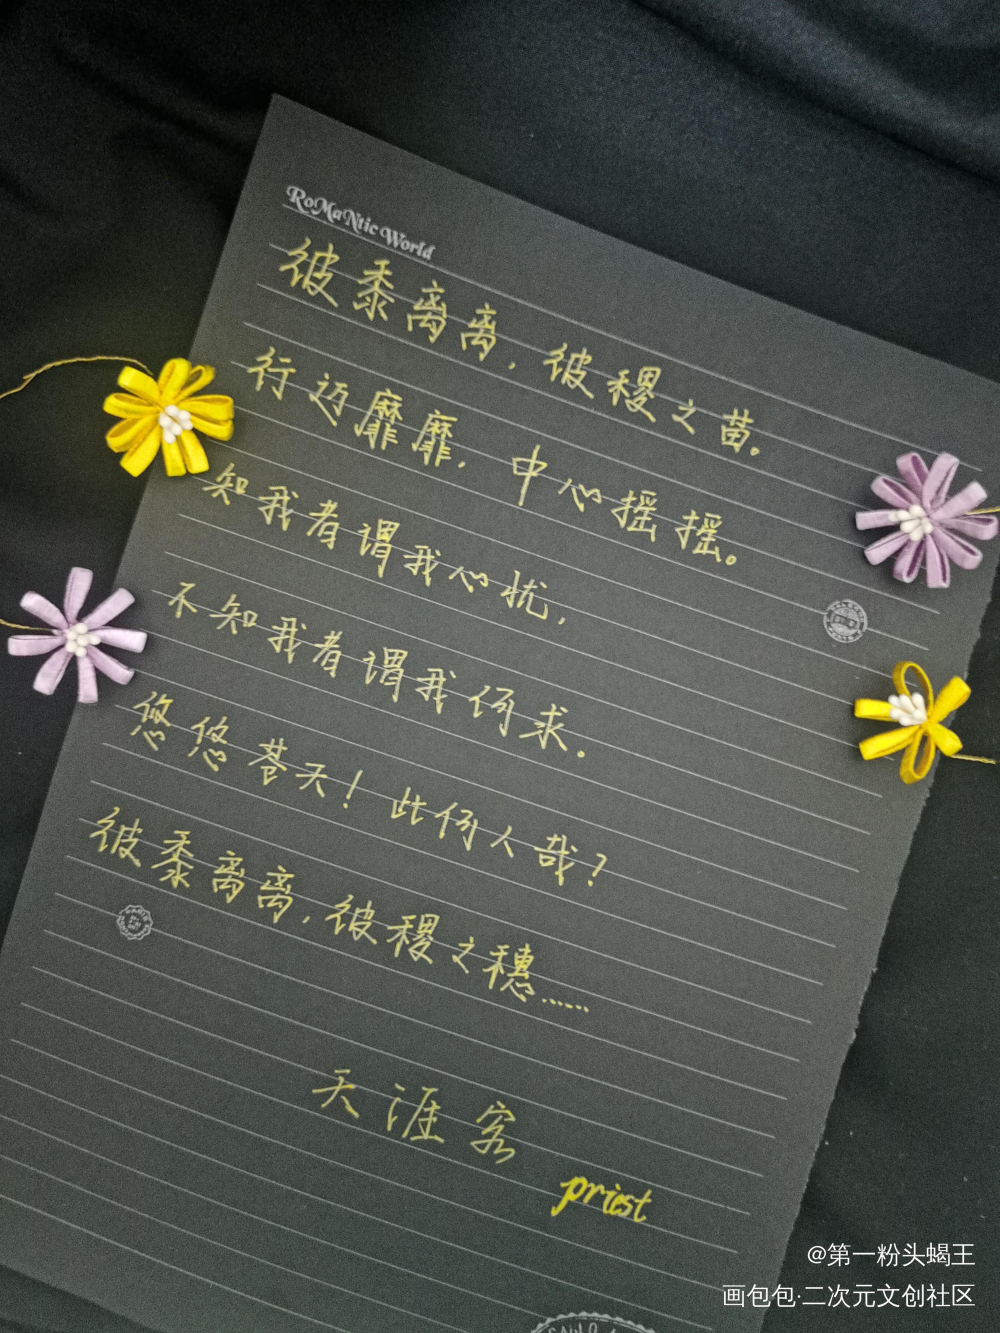 RoMaNtic World
彼黍离离，彼稷之苗。
行迈靡靡，中心摇摇。
知我者谓我心忧，
不知我者谓我何求。
悠悠苍天！此何人哉？
彼黍离离，彼稷之穗……
天涯客
priest
@第一粉头蝎王
画包包·二次元文创社区